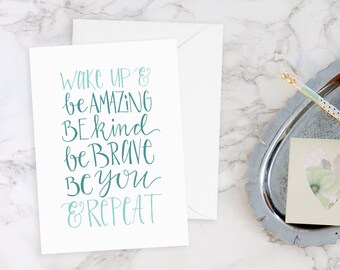 WAKE UP &
be AMAZING
BE kind
be BRAVE
BE YOU
& REPEAT